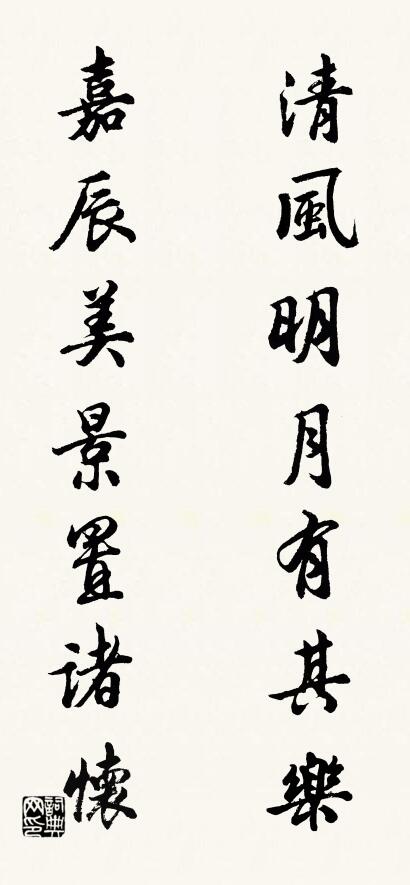 清風明月有其樂
嘉辰美景置諸懷
詞典網印